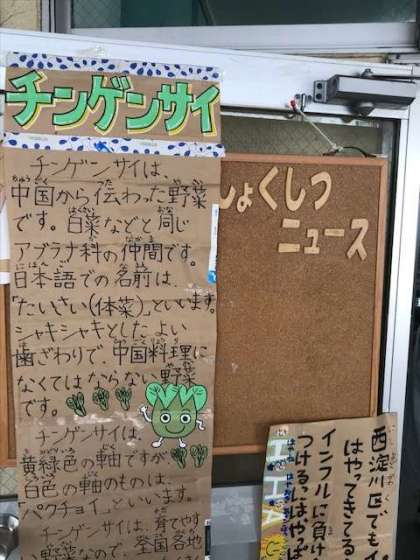 チンゲンサイ
チンゲンサイは、
中国から伝わった野菜
です。白菜などと同じ
アブラナ科の仲間です。
日本語での名前は、
「たいさい(体菜)」といいます。
シャキシャキとしたよい
歯ざわりで、中国料理に
なくてはならない野菜
です。
チンゲンサイは、
黄緑色の軸ですが、
白色の軸のものは、
「パクチョイ」といいます。
チンゲンサイは、育てやす
い野菜なので、全国各地
しょくしつ
ニュース
西淀川区でも。
はやってきてる
インフルに負
つけるにはやっぱ